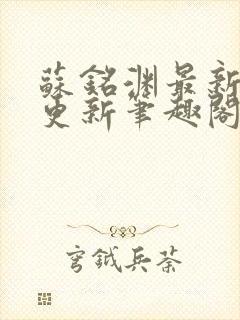 蘇銘淵最新
更新筆趣閣
穹鉞兵荼